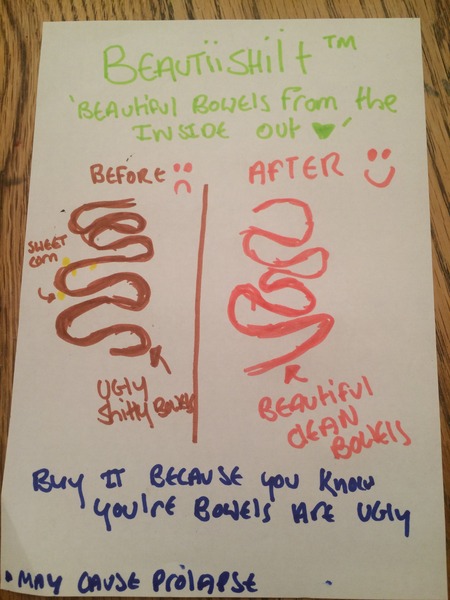 BEAUTiiSHiLt™
'BEAUTIFUL BOWELS From the
INSIDE Out ♥'
BEFORE
AFTER
SWEET
CORN
UGLY
Shitty BOWELS
BEAUtiFUL
CLEAN
BOWELS
Buy IT BECAUSE you KNOW
You'RE BOWELS ARE UGLY
• MAY CAUSE PROLAPSE